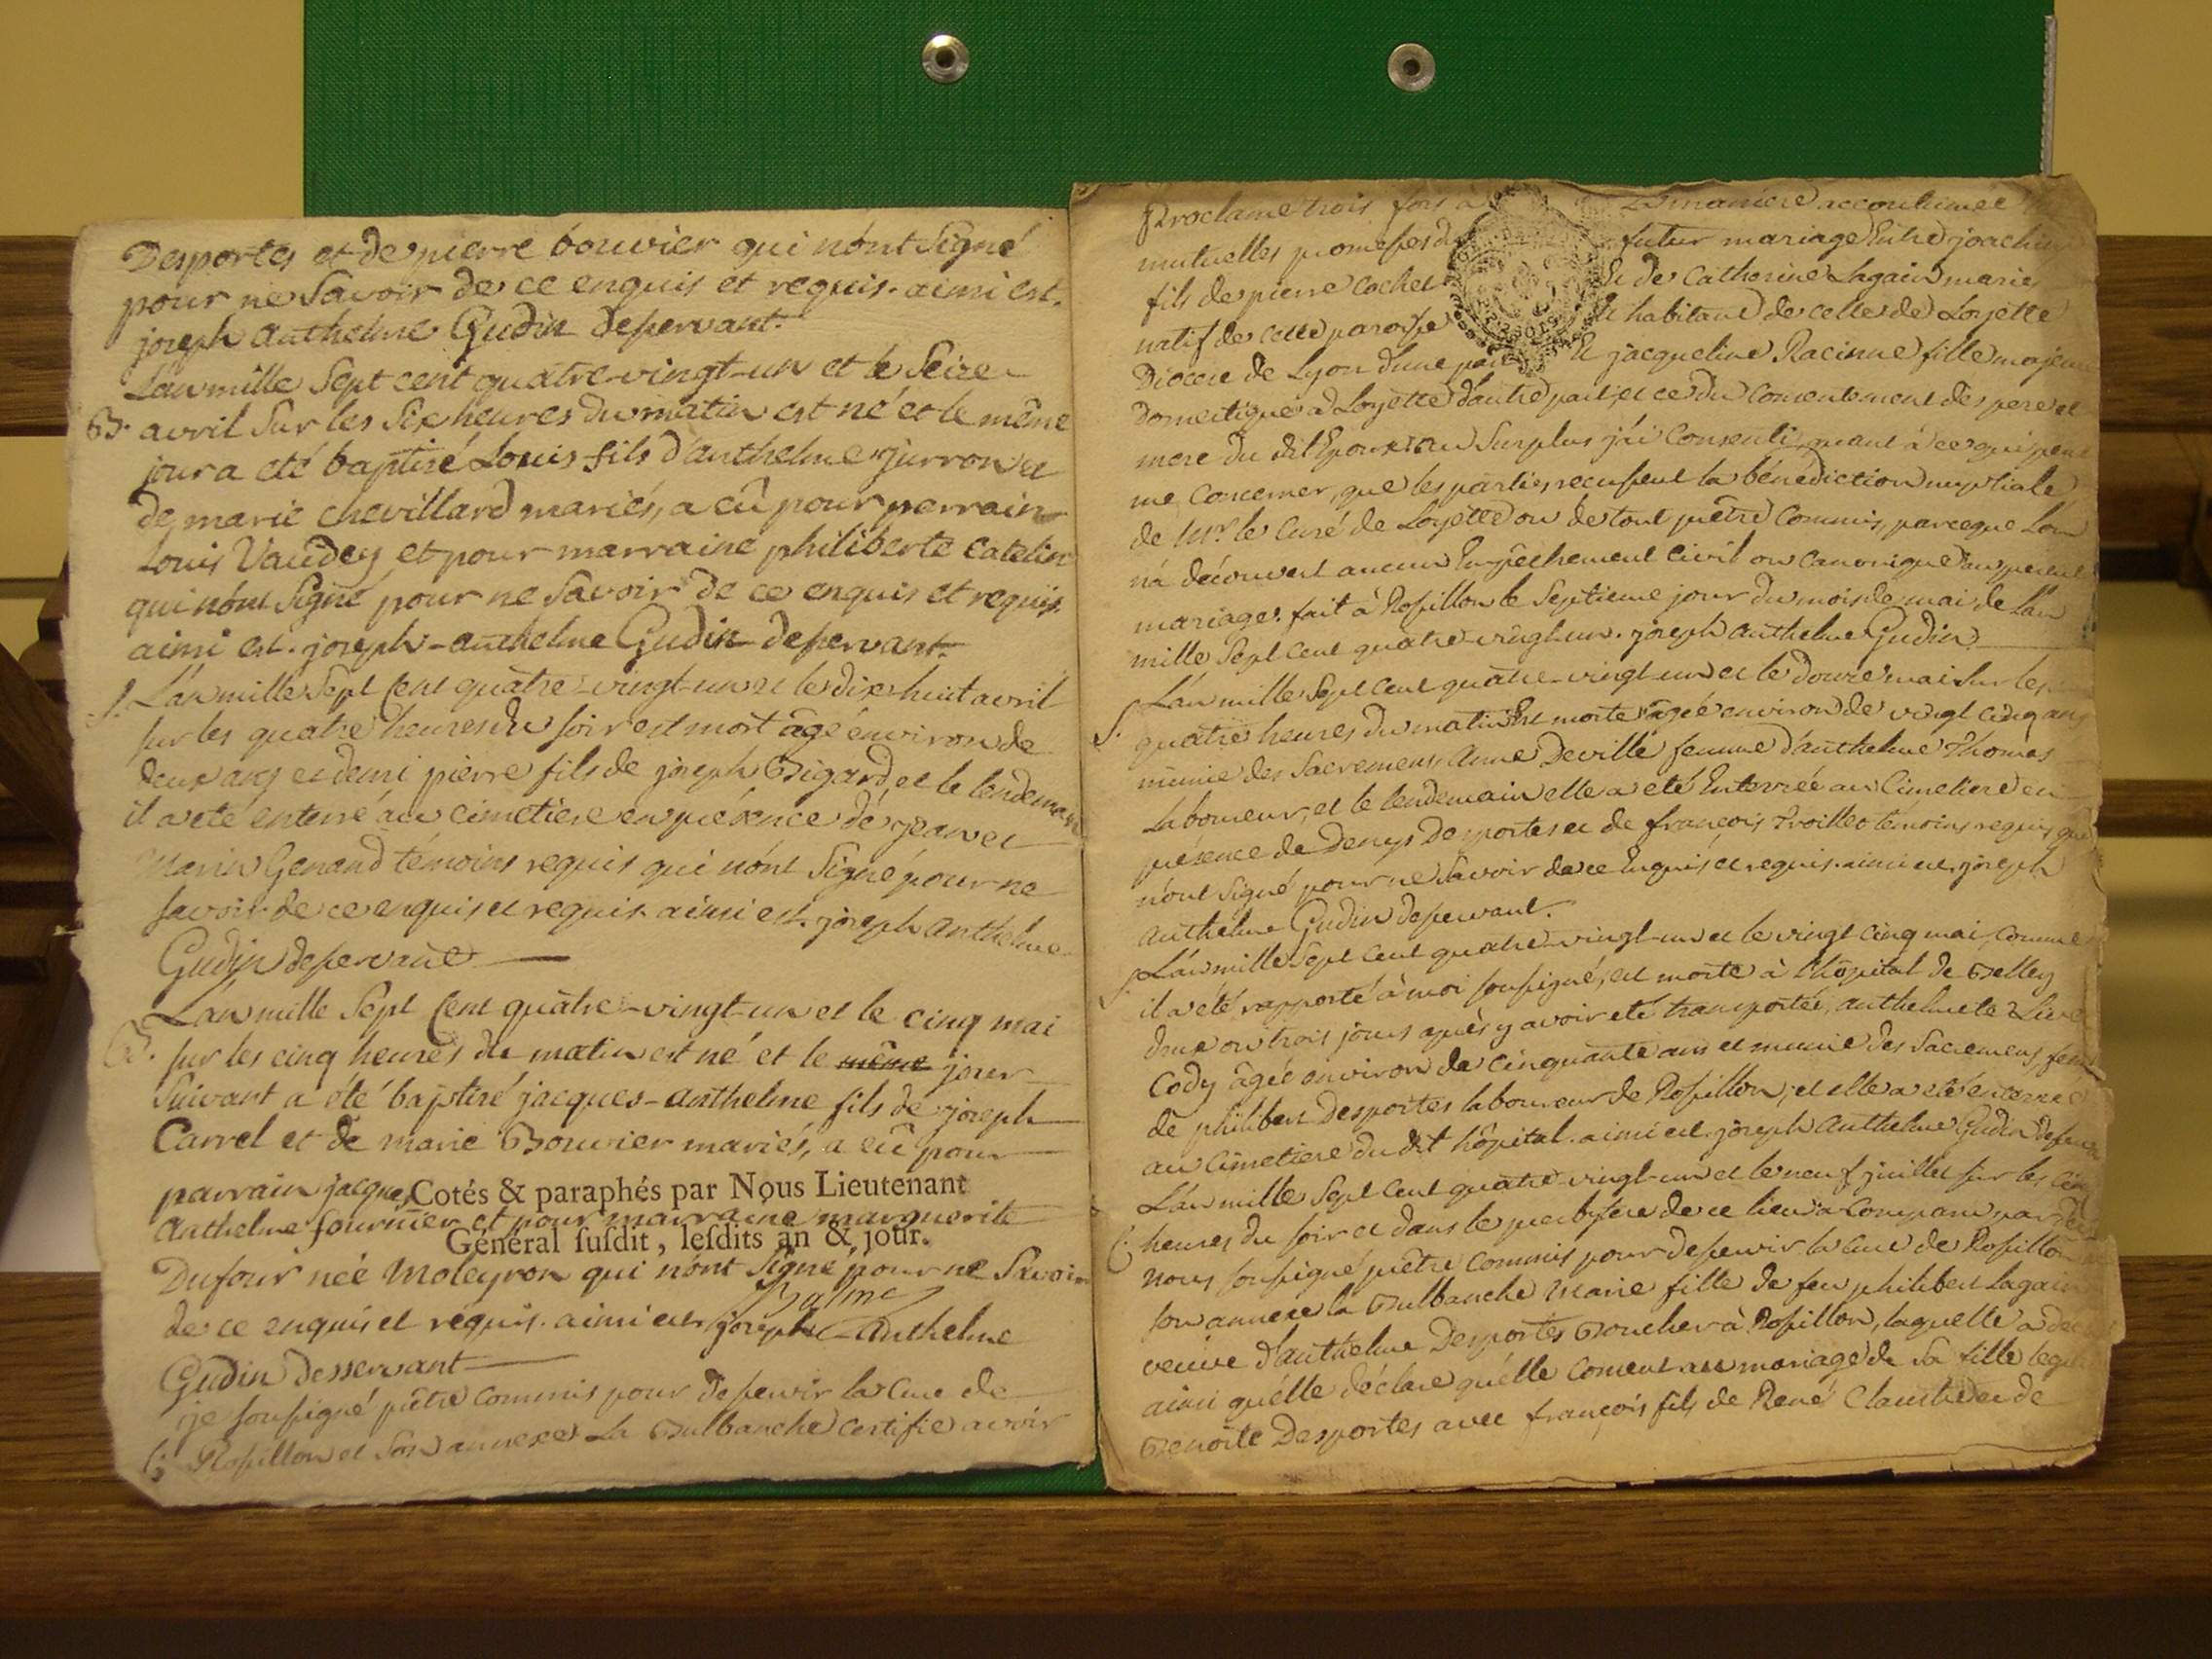 Desportes et de pierre bouvier qui n'ont Signé
pour ne Savoir de ce enquis et requis. ainsi est.
joseph Anthelme Gudin desservant.
L'an mille Sept cent quatre-vingt-un et le Seize
B. avril Sur les Six heures du matin est né et le même
jour a eté baptisé Louis fils d'anthelme jurron et
de marie chevillard mariés, a eû pour perrain
Louis Vaudey et pour marraine philiberte Catelin
qui n'ont Signé pour ne Savoir de ce enquis et requis.
ainsi est. joseph-anthelme Gudin desservant.
S. L'an mille Sept Cent quatre-vingt-un et le dix huit avril
sur les quatre heures du soir est mort âgé environ de
deux ans et demi pierre fils de joseph Bigard, et le lendemain
il a eté enterré au cimetiere en présence de jean et
Marin Genand témoins requis qui n'ont Signé pour ne
savoir de ce enquis et requis. ainsi est. joseph anthelme
Gudin desservant
L'an mille Sept Cent quatre-vingt-un et le cinq mai
B. sur les cinq heures du matin est né et le même jour
Suivant a été baptisé jacques-anthelme fils de joseph
Carrel et de marie Bouvier mariés, a eû pour
parrain jacques Cotés & paraphés par Nous Lieutenant
Anthelme fournier et pour marraine marguerite
Général ſuſdit, leſdits an & jour.
Dufour née Moleyron qui n'ont Signé pour ne Savoir
Balme
de ce enquis et requis. ainsi est joseph-Anthelme
Gudin desservant
je soussigné prêtre Commis pour desservir la Cure de
C. Rossillon et Son annexe La Bulbanche Certifie avoir
Proclamé trois fois a la maniere accoutumée
mutuelles promesses du futur mariage Entre joachim
fils de pierre Cochet Et de Catherine Lagain mariés
natif de cette paroisse Et habitant de celle de Loyette
Diocese de Lyon d'une part Et jacqueline Racinne fille majeure
Domestique à Loyette d'autre part, et ce du Consentement des pere et
mere du dit Epoux; au Surplus j'ai Consenti, quant à ce qui peut
me Concerner, que les parties reçussent la bénediction nuptiale
de Mr. le Curé de Loyette ou de tout prêtre Commis, parceque L'on
n'a découvert aucun Empêchement Civil ou Canonique au present
mariage. fait à Rossillon le Septieme jour du mois de mai de l'an
mille Sept Cent quatre-vingt-un. joseph anthelme Gudin
L'an mille Sept Cent quatre-vingt-un et le douze mai Sur les
S. quatre heures du matin Est morte âgée environ de vingt cinq ans
munie des Sacremens Anne Deville femme d'anthelme Thomas
Laboureur, et le lendemain elle a eté Enterrée au Cimetiere en
présence de Denys Desportes et de françois Troillet témoins requis qui
n'ont Signé pour ne Savoir de ce Enquis et requis. ainsi est. joseph
Anthelme Gudin desservant.
S. L'an mille Sept Cent quatre-vingt-un et le vingt cinq mai, Comme
il a été rapporté à moi soussigné, est morte à l'hôpital de Belley
deux ou trois jours après y avoir eté transportée, anthelmete
Cody âgée environ de Cinquante ans et munie des Sacremens, femme
de philibert Desportes laboureur de Rossillon, et elle a été enterrée
au Cimetiere du dit hôpital. ainsi est. joseph Anthelme Gudin
L'an mille Sept Cent quatre-vingt-un et le neuf juillet sur les cinq
C. heures du soir et dans le presbytère de ce lieu a Comparu par devant
nous soussigné prêtre Commis pour desservir la Cure de Rossillon
son annexe la Bulbanche Marie fille de feu philibert Lagain
veuve d'anthelme Desportes Boucher à Rossillon, laquelle a
ainsi qu'elle déclare qu'elle Consent au mariage de Sa fille
Benoite Desportes avec françois fils de René Claustre et de